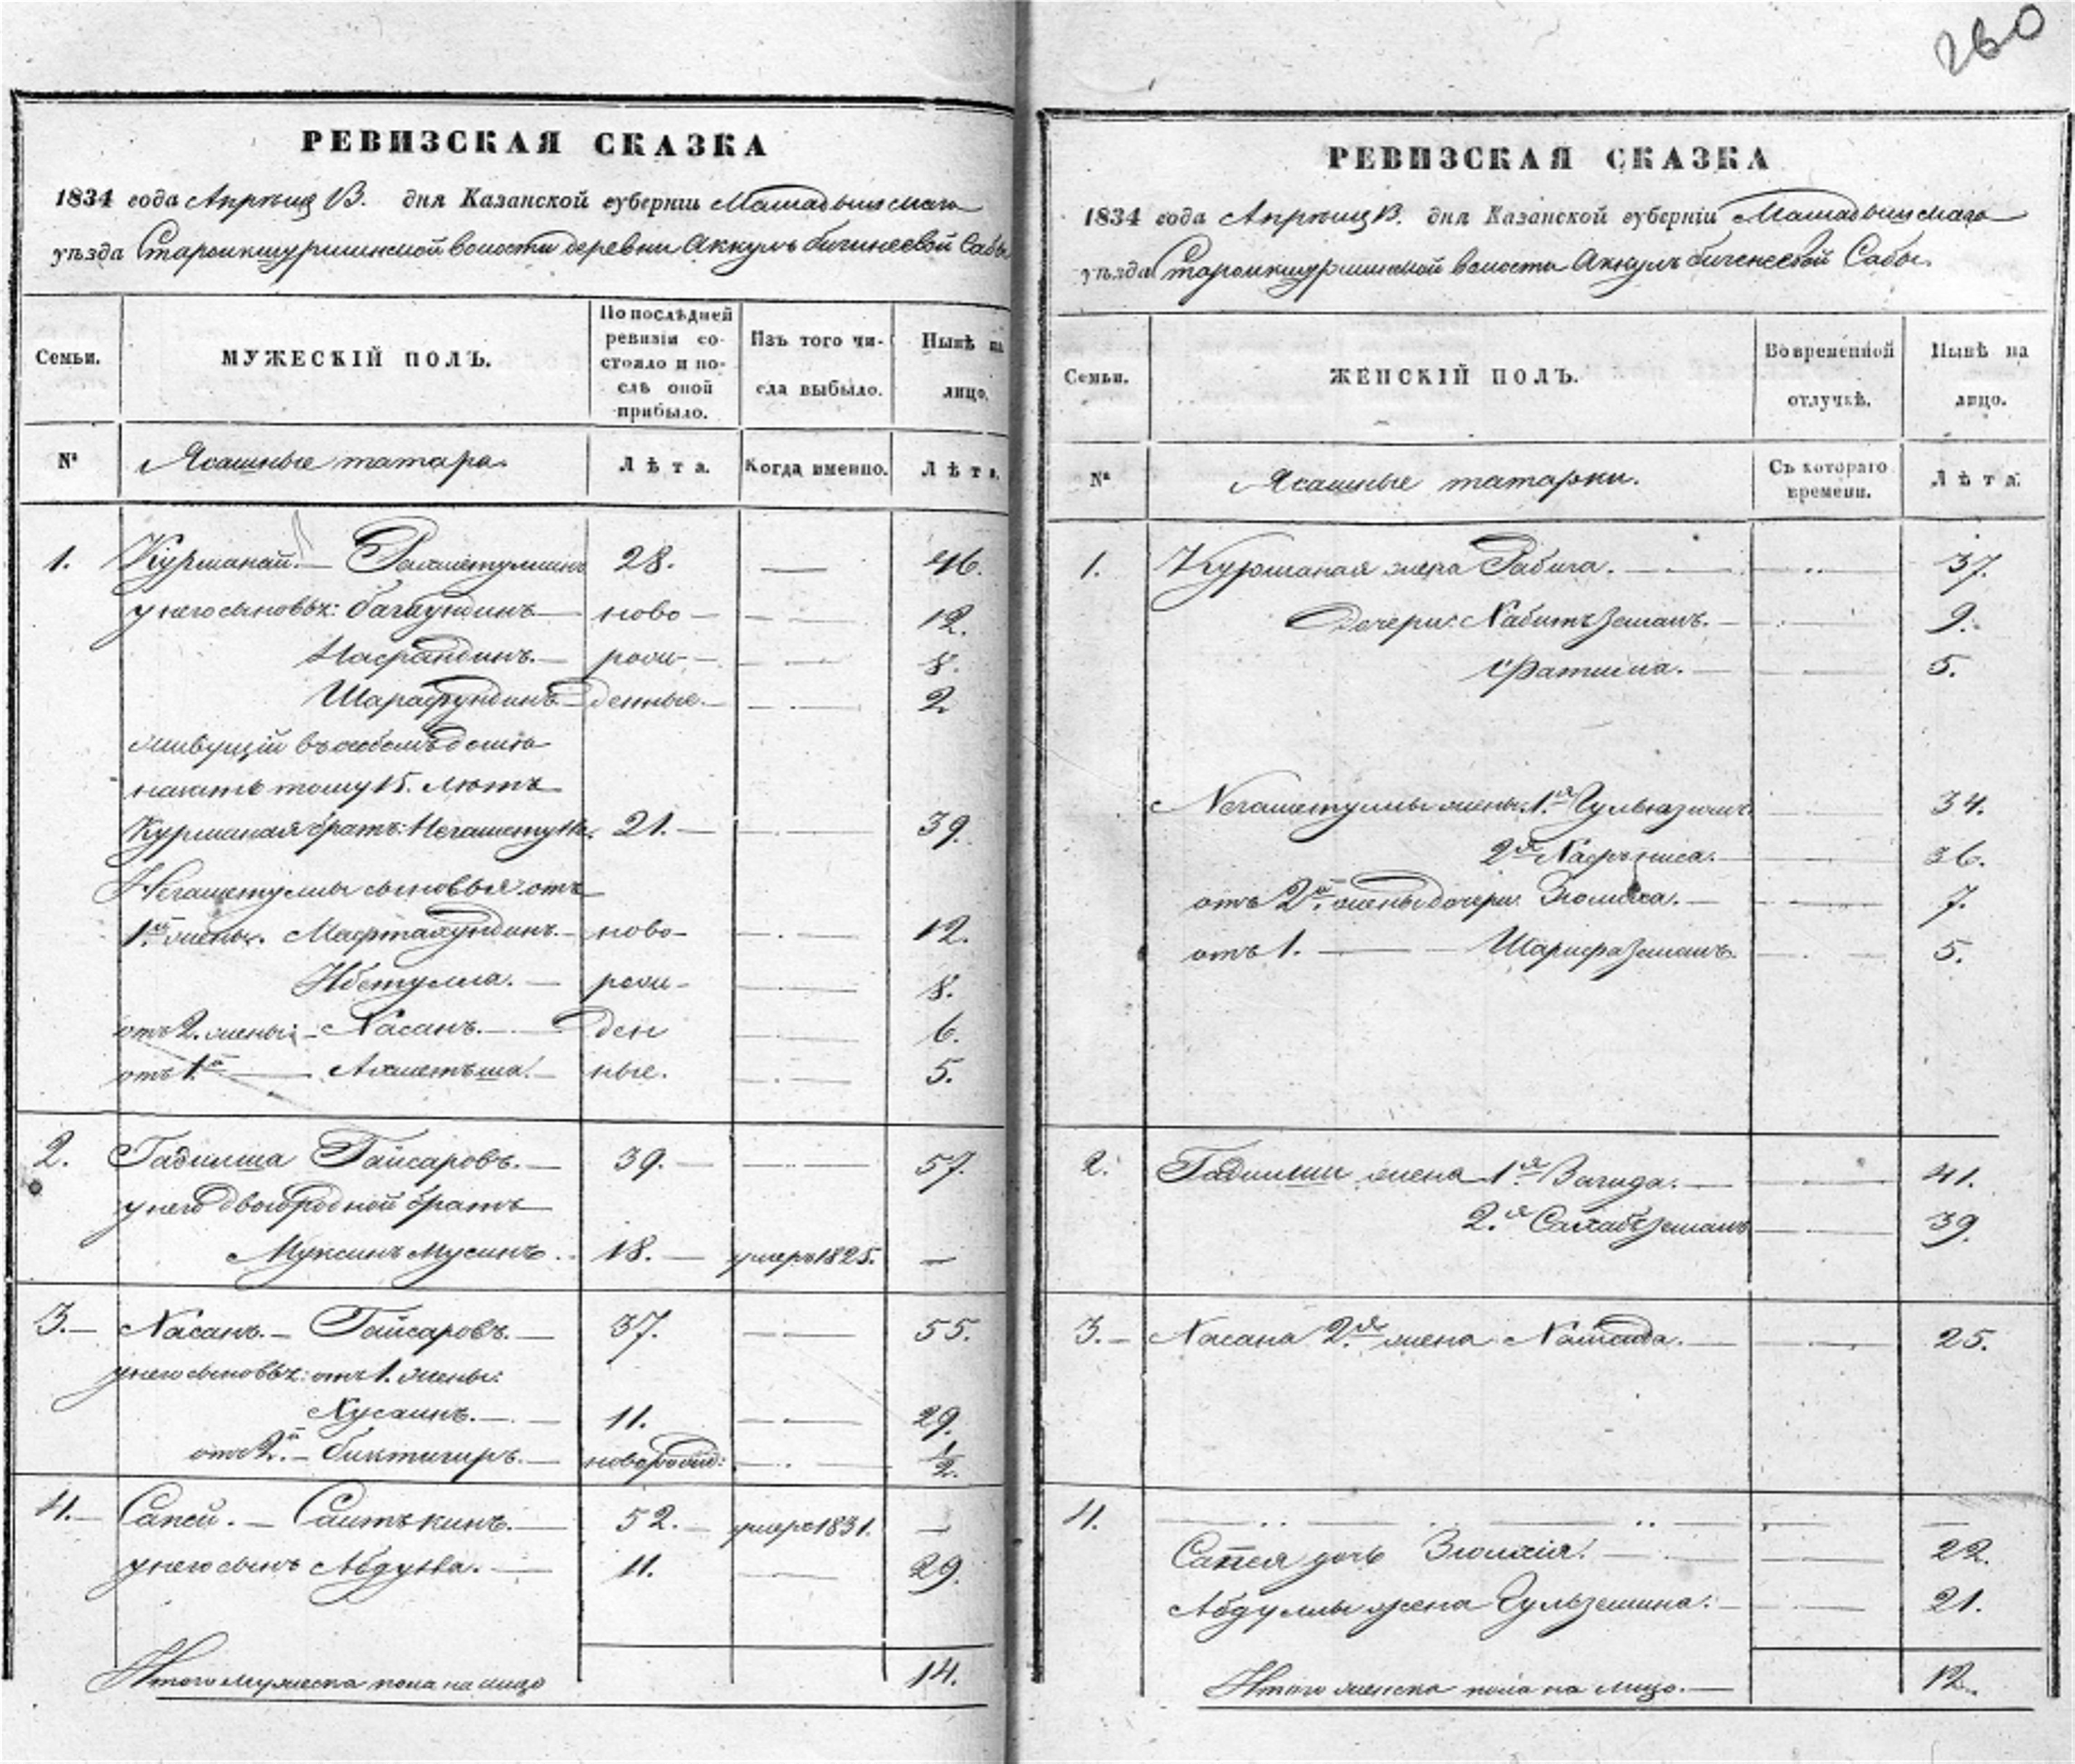 260
РЕВИЗСКАЯ СКАЗКА
1834 года Апрѣля 13. дня Казанской губерніи Мамадышскаго
уѣзда Староикшурминской волости деревни Аккулъ бигинеевой Сабы
Семьи.
МУЖЕСКІЙ ПОЛЪ.
По послѣдней
ревизіи со-
стояло и по-
слѣ оной
прибыло.
Изъ того чи-
сла выбыло.
Нынѣ на
лицо.
№ Ясашные татара. Лѣта. Когда именно. Лѣта.
1. Курманай. — Рахметуллинъ 28. — 46.
у него сыновья: багаундинъ — ново — 12.
Насрындинъ. — рож — 8.
Шарафундинъ — денные. — 2
живущій въ особомъ домѣ
назатъ тому 15. лѣтъ
Курманая братъ: 21. — 39.
Негаметуллы сыновья отъ
1й жены. ново — 12.
Ибетулла. — рож — 8.
отъ 2. жены: — Хасанъ. — ден 6.
отъ 1й — Ахметьша. — ные. 5.
2. Гадильша Гайсаровъ. — 39. — 57.
у него двоюродной братъ
Муксинъ Мусинъ. 18. — умеръ 1825. —
3. — Хасанъ. — Гайсаровъ. — 37. — 55.
у него сыновья: отъ 1. жены:
Хусаинъ. — 11. — 29.
отъ 2й — биктигиръ. — новорожд: — 1/2.
4. — Сапей. — Саитькинъ. — 52. — умеръ 1831. —
у него сынъ Абдулла. — 11. — 29.
Итого мужеска пола на лицо 14.
РЕВИЗСКАЯ СКАЗКА
1834 года Апрѣля 13. дня Казанской губерніи Мамадышскаго
уѣзда Староикшурминской волости Аккулъ бигенеевой Сабы.
Семьи.
ЖЕНСКІЙ ПОЛЪ.
Во временной
отлучкѣ.
Нынѣ на
лицо.
№ Ясашные татарки. Съ котораго
времени. Лѣта.
1. Курманая жена Рабига. — 37.
дочери: Хабитъземалъ. — 9.
Фатыма. — 5.
Негаметуллы жены: 1я 34.
2я 36.
отъ 2й жены дочери — 7.
отъ 1. — Шарифаземалъ. 5.
2. Гадильши жена 1я Вагида. — 41.
2я Сахабъземалъ 39.
3. — Хасана 2я жена — 25.
4. — —
Сапея дочь Зюлхія. — 22.
Абдуллы жена Гульземина. — 21.
Итого женска пола на лицо. — 12.